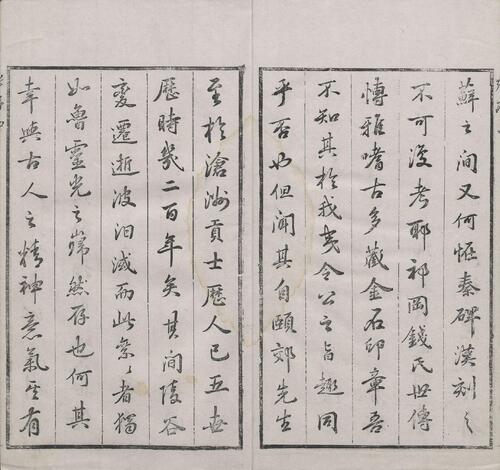 蘚之間又何怪秦碑漢刻之
不可復考耶祁岡錢氏世傳
博雅嗜古多藏金石印章吾
不知其於我叟令公之旨趣同
乎否也但聞其自頤郊先生
至於滄洲貢士歷人已五世
歷時幾二百年矣其間陵谷
變遷逝波汩滅而此纍纍者獨
如魯靈光之巋然存也何其
幸與古人之精神意氣其有